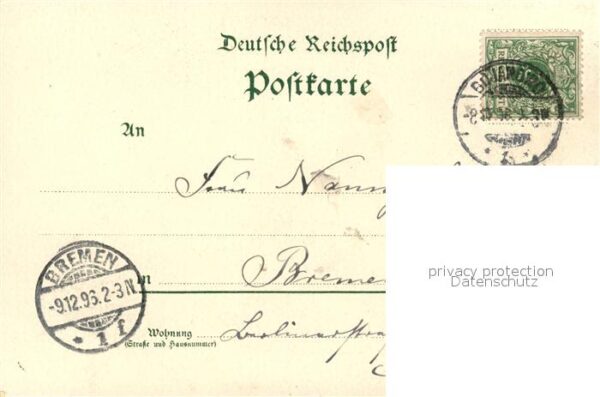 Deutsche Reichspost
Postkarte
An
Frau Nanny
in Bremen
Wohnung
(Straße und Hausnummer)
Berlinerstra
BREMEN
-9.12.96.2-3N
* 1 f
privacy protection
Datenschutz